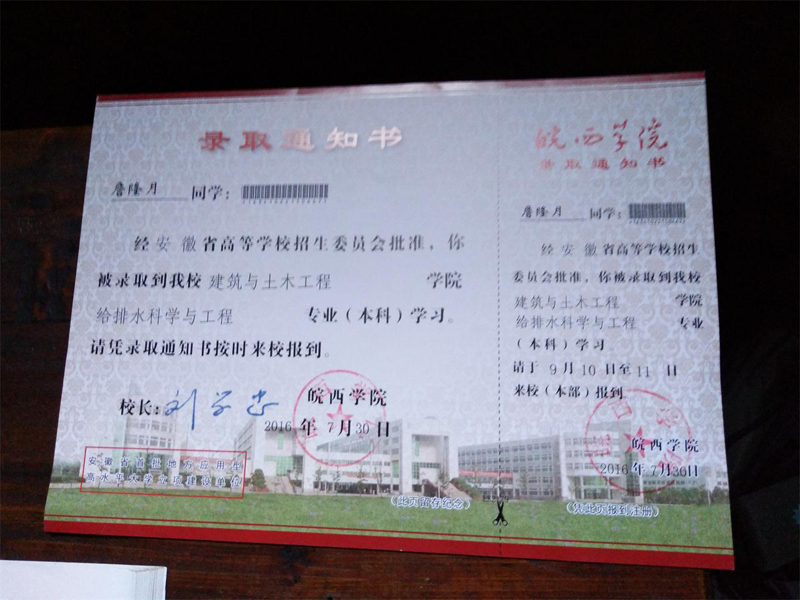 录取通知书
詹隆月 同学：
经 安 徽 省高等学校招生委员会批准，你
被录取到我校 建筑与土木工程 学院
给排水科学与工程 专业（本科）学习。
请凭录取通知书按时来校报到。
校长：刘学忠
皖西学院
2016 年 7 月 30 日
安徽省首批地方应用型
高水平大学立项建设单位
（此页留存纪念）
皖西学院
录取通知书
詹隆月 同学：
经 安 徽 省高等学校招生
委员会批准，你被录取到我校
建筑与土木工程 学院
给排水科学与工程 专业
（本科）学习
请于 9 月 10 日至 11 日
来校（本部）报到
皖西学院
2016 年 7 月 30 日
（凭此页报到注册）